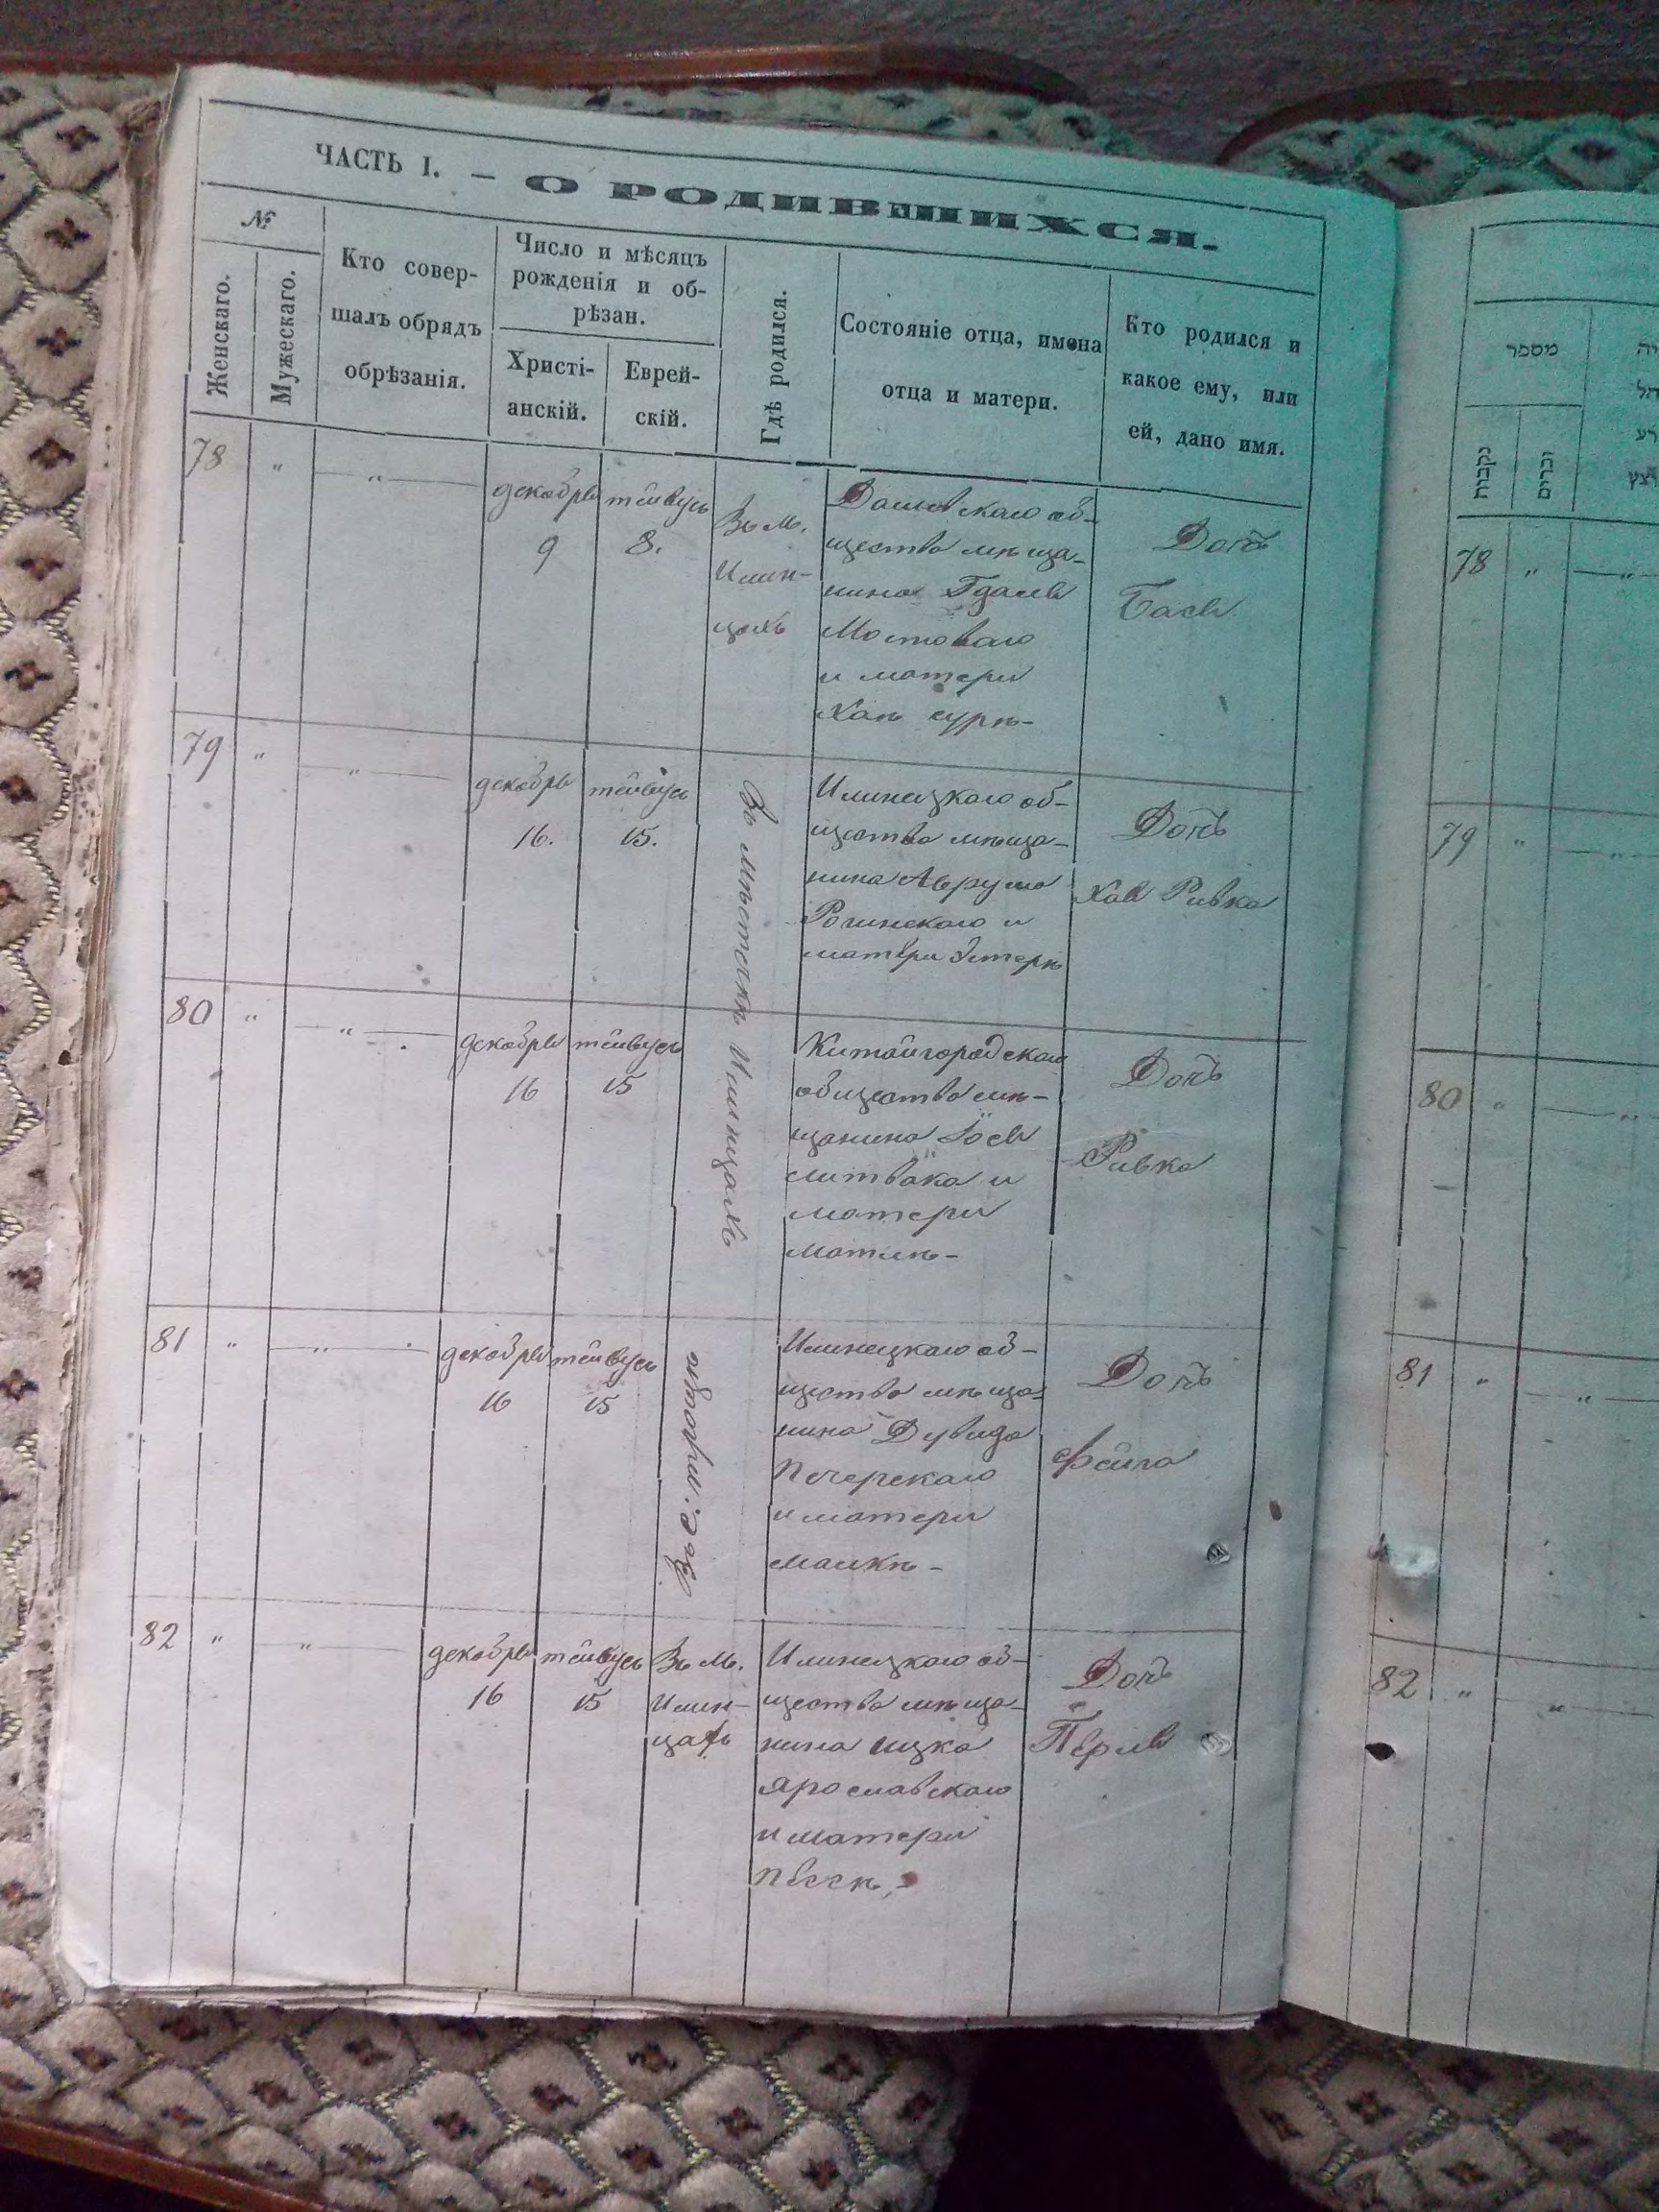 ЧАСТЬ I. — О РОДИВШИХСЯ.
№
Женскаго.
Мужескаго.
Кто совер-
шалъ обрядъ
обрѣзанія.
Число и мѣсяцъ
рожденія и об-
рѣзан.
Христі-
анскій.
Еврей-
скій.
Гдѣ родился.
Состояніе отца, имена
отца и матери.
Кто родился и
какое ему, или
ей, дано имя.
78 " — " —
декабря
9
тейвусъ
8.
Въ М.
Илин-
цахъ
Дашовскаго об-
щества мѣща-
нина Гдаля
Мостоваго
и матери
Хан сурѣ-
Дочь
Бася
79 " — " —
декабря
16.
тейвусъ
15.
Въ мѣстечкѣ Илинцахъ
Илинецкаго об-
щества мѣща-
нина Аврума
Рогинскаго и
матери Эстерѣ
Дочь
Хая Ривка
80 " — " —
декабря
16
тейвусъ
15
Китайгородскаго
общества мѣ-
щанина Іося
литвака и
матери
Матлѣ-
Дочь
Ривка
81 " — " —
декабря
16
тейвусъ
15
Илинецкаго об-
щества мѣща-
нина Дувида
Печерскаго
и матери
малкѣ-
Дочь
Фейга
82 " — " —
декабря
16
тейвусъ
15
Въ М.
Илин-
цахъ
Илинецкаго об-
щества мѣща-
нина ицка
Ярославскаго
и матери
Песѣ,-
Дочь
Перля
מספר
נקבות
זכרים
78 " — " —
79 " — " —
80 " — " —
81 " — " —
82 " — " —